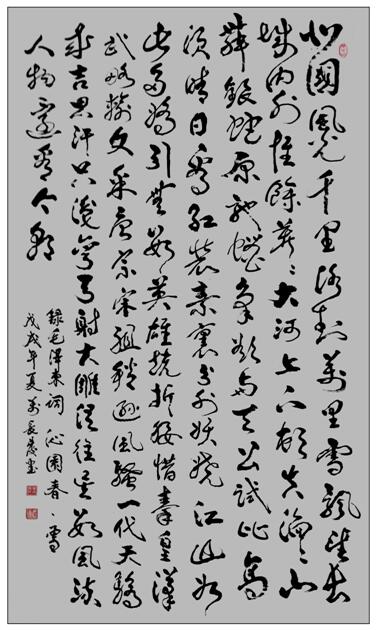 北國風光千里冰封萬里雪飄望長
城内外惟餘莽〻大河上下頓失滔〻山
舞銀蛇原馳蠟象欲與天公試比高
須晴日看紅裝素裹分外妖嬈江山如
此多嬌引無數英雄競折腰惜秦皇漢
武略輸文采唐宗宋祖稍遜風騷一代天驕
成吉思汗只識彎弓射大雕俱往矣數風流
人物還看今朝
錄毛澤東詞 沁園春、雪
戊戌年夏 長 書